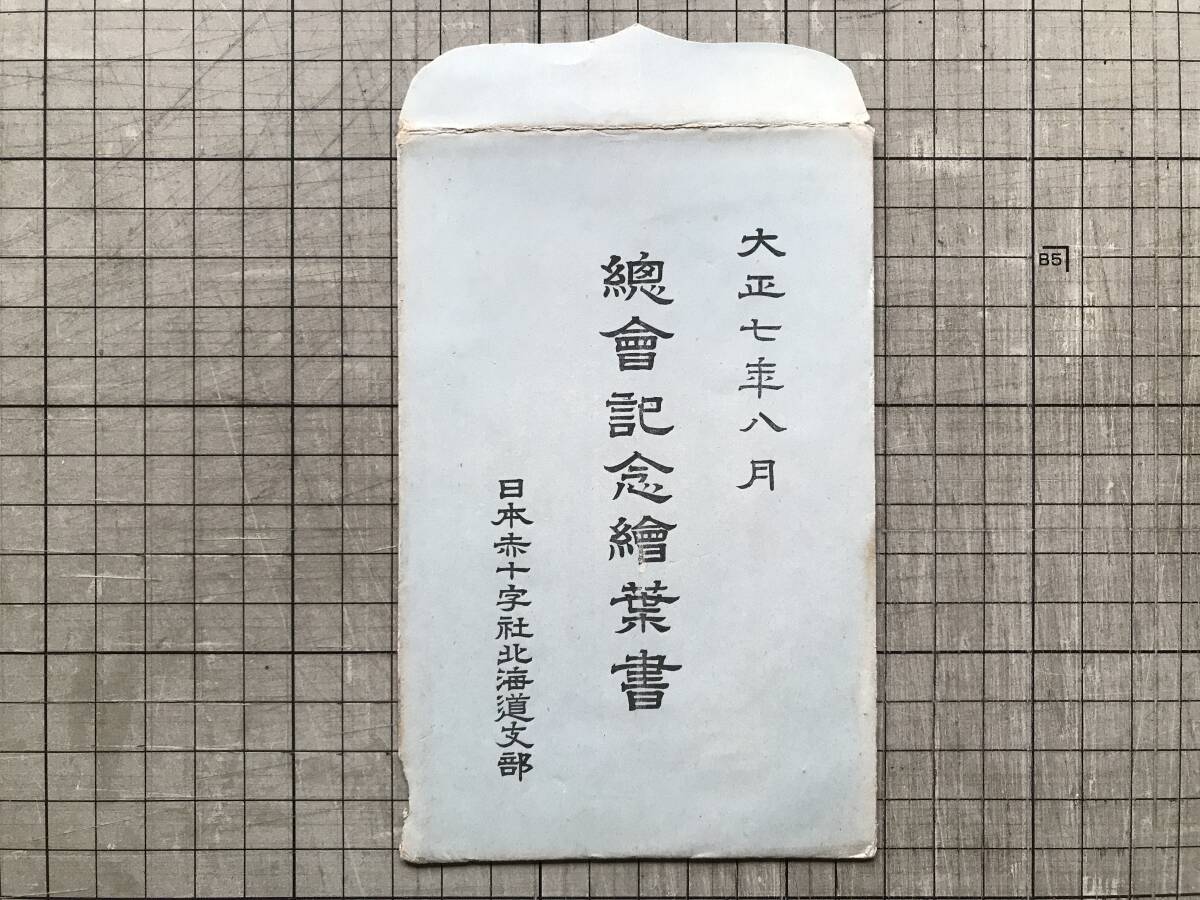 大正七年八月
總會記念繪葉書
日本赤十字社北海道支部
B5